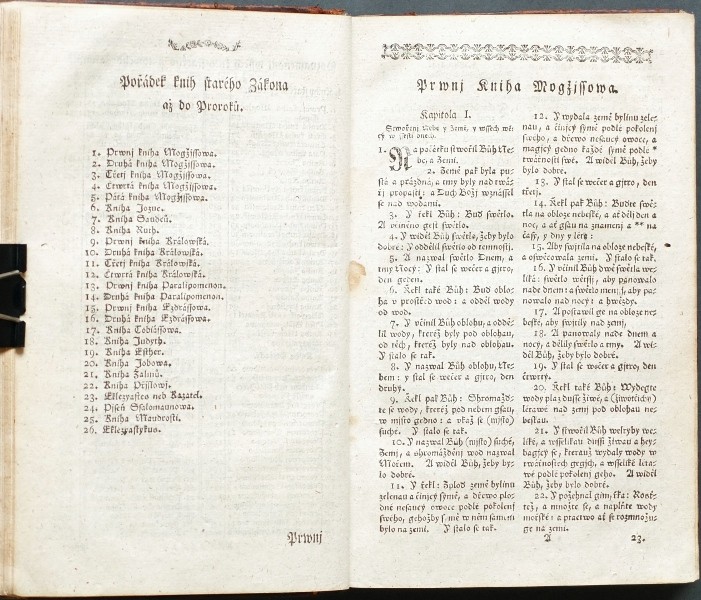 Pořádek knih starého Zákona
až do Proroků.
1. Prwnj kniha Mogžissowa.
2. Druhá kniha Mogžissowa.
3. Třetj kniha Mogžissowa.
4. Čtwrtá kniha Mogžissowa.
5. Pátá kniha Mogžissowa.
6. Kniha Jozue.
7. Kniha Saudců.
8. Kniha Ruth.
9. Prwnj kniha Králowská.
10. Druhá kniha Králowská.
11. Třetj kniha Králowská.
12. Čtwrtá kniha Králowská.
13. Prwnj kniha Paralipomenon.
14. Druhá kniha Paralipomenon.
15. Prwnj kniha Ezdrássowa.
16. Druhá kniha Ezdrássowa.
17. Kniha Tobiássowa.
18. Kniha Judyth.
19. Kniha Esther.
20. Kniha Jobowa.
21. Kniha Žalmů.
22. Kniha Přjslowj.
23. Eklezyastes neb Kazatel.
24. Pjseň Ssalomaunowa.
25. Kniha Maudrosti.
26. Eklezyastykus.
Prwnj
Prwnj Kniha Mogžjssowa.
Kapitola I.
Stwořenj Nebe y Země, y wssech wě-
cý w ssesti dnech.
1. Na počátku stwořil Bůh Ne-
be, a Zemi.
2. Země pak byla pu-
stá a prázdná, a tmy byly nad twá-
řj propasti: a Duch Božj wznássel
se nad wodami.
3. Y řekl Bůh: Buď swětlo.
A včiněno gest swětlo.
4. Y widěl Bůh swětlo, žeby bylo
dobré: Y oddělil swětlo od temnostj.
5. A nazwal swětlo Dnem, a
tmy Nocy: Y stal se wečer a gitro,
den geden.
6. Řekl také Bůh: Buď oblo-
ha v prostřed wod: a odděl wody
od wod.
7. Y včinil Bůh oblohu, a oddě-
lil wody, kteréž byly pod oblohau,
od těch, kteréž byly nad oblohau.
Y stalo se tak.
8. Y nazwal Bůh oblohu, Ne-
bem: y stal se wečer a gitro, den
druhý.
9. Řekl pak Bůh: Shromaž-
ďte se wody, kteréž pod nebem gsau,
w mjsto gedno: a vkaž se (mjsto)
suché. Y stalo se tak.
10. Y nazwal Bůh (mjsto) suché,
Zemj, a shromážděnj wod nazwal
Mořem. A widěl Bůh, žeby by-
lo dobré.
11. Y řekl: Zploď země bylinu
zelenau a činjcý sýmě, a dřewo plo-
dné nesaucý owoce podlé pokolenj
swého, gehožby sýmě w něm samém
bylo na zemi. Y stalo se tak.
12. Y wydala země bylinu zele-
nau, a činjcý sýmě podlé pokolenj
swého, a dřewo nesaucý owoce, a
magjcý gedno každé sýmě podlé *
twářnosti swé. A widěl Bůh, žeby
bylo dobré.
13. Y stal se wečer a gitro, den
třetj.
14. Řekl pak Bůh: Buďte swě-
tla na obloze nebeské, a ať dělj den a
noc, a ať gsau na znamenj a ** na
časy, y dny y léta:
15. Aby swjtila na obloze nebeské,
a oswěcowala zemi. Y stalo se tak.
16. Y včinil Bůh dwě swětla we-
liká: swětlo wětssj, aby panowalo
nade dnem: a swětlo menssj, aby pa-
nowalo nad nocý: a hwězdy.
17. A postawil ge na obloze ne-
beské, aby swjtily nad zemj,
18. A panowaly nade dnem a
nocy, a dělily swětlo a tmy. A wi-
děl Bůh, žeby bylo dobré.
19. Y stal se wečer a gitro, den
čtwrtý.
20. Řekl také Bůh: Wydegte
wody plaz dusse žiwé, a (žiwočichy)
létawé nad zemj pod oblohau ne-
beskau.
21. Y stwořil Bůh welryby we-
liké, a wsselikau dussi žiwau a hey-
bagjcý se, kterauž wydaly wody w
twářnostech gegjch, a wsseliké léta-
wé podlé pokolenj geho. A widěl
Bůh, žeby bylo dobré.
22. Y požehnal gim, řka: Rosť-
tež, a množte se, a naplňte wody
mořské: a ptactwo ať se rozmnožu-
ge na zemi.
A 23.